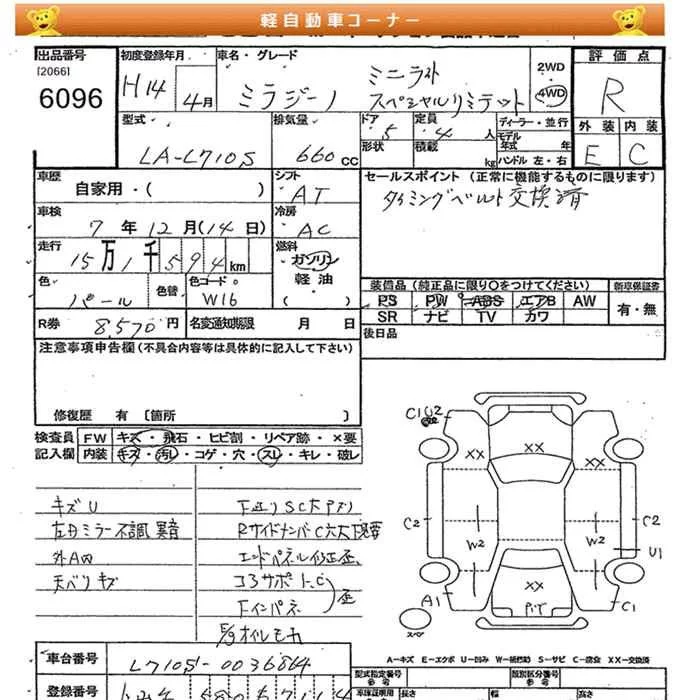 軽自動車コーナー
出品番号 初度登録年月 車名・グレード 2WD 評価点
[2066] H14 ミニライト 4WD R
6096 4月 ミラジーノ スペシャルリミテッド
型式 排気量 ドア 定員 ディーラー・並行 外装 内装
5 4 人 モデル年式 年
LA-L710S 660 CC 形状 積載 kg ハンドル 左・右 E C
車歴 シフト セールスポイント (正常に機能するものに限ります)
自家用・( ) AT タイミングベルト交換済
車検 冷房
7 年 12 月(14 日) AC
走行 燃料
15万1千594 km ガソリン
色 色替 色コード 軽油 装備品 (純正品に限り○をつけてください) 新車保証書
パール W16 ( ) PS PW ABS エアB AW 有・無
R券 8,570円 名変通知期限 月 日 SR ナビ TV カワ
注意事項申告欄(不具合内容等は具体的に記入して下さい) 後日品
修復歴 有 〔箇所 〕
検査員 FW キズ・飛石・ヒビ割・リペア跡・×要
記入欄 内装 キズ・汚レ・コゲ・穴・スレ・キレ・破レ
C1 U2
XX XX XX
キズU
左Dミラー不調 異音
外A凹
天ベリキズ
エンドパネル修正歪
コアサポートC
Fインパネ
歪
C2 W2 W2 C2
U1
XX
A1 C1
スペア
車台番号 L710S-0036864
A-キズ E-エクボ U-凹み W-板金跡 S-サビ C-腐食 XX-交換済
登録番号
型式指定番号 類別区分番号
長さ 幅 高さ